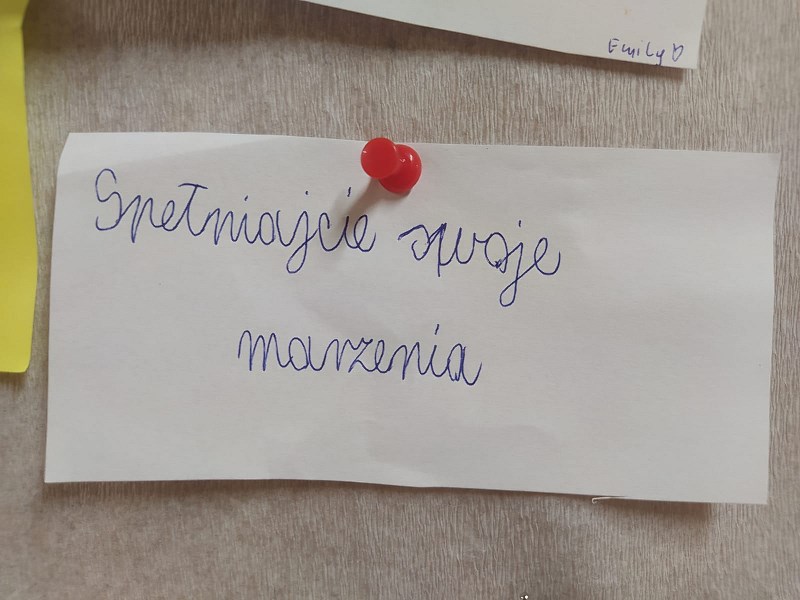 Emily
Spełniajcie swoje
marzenia